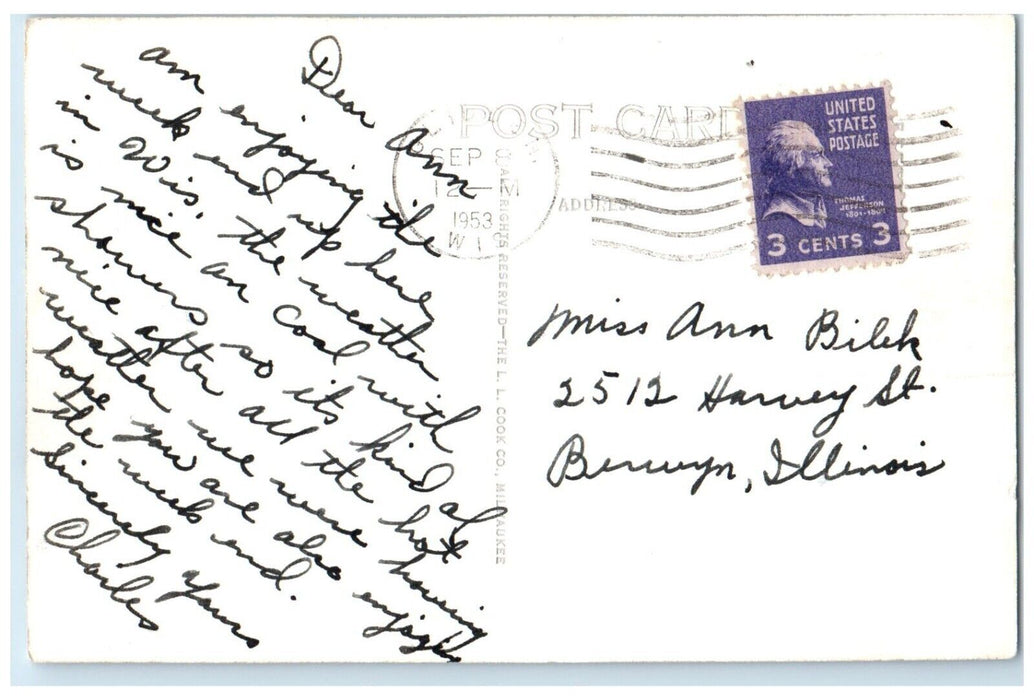 Dear Ann
am enjoying the
week end up here
in Wis. the weather
is nice an cool with
showers so its kind of
nice after all the hot
weather we were having
hope you are also enjoying
the week end.
Sincerely yours
Charles
POST CARD
ADDRESS
SEP
12 — M
1953
WI
ALL RIGHTS RESERVED—THE L. L. COOK CO., MILWAUKEE
UNITED
STATES
POSTAGE
THOMAS
JEFFERSON
1801-1809
3 CENTS 3
Miss Ann Bilek
2512 Harvey St.
Berwyn, Illinois